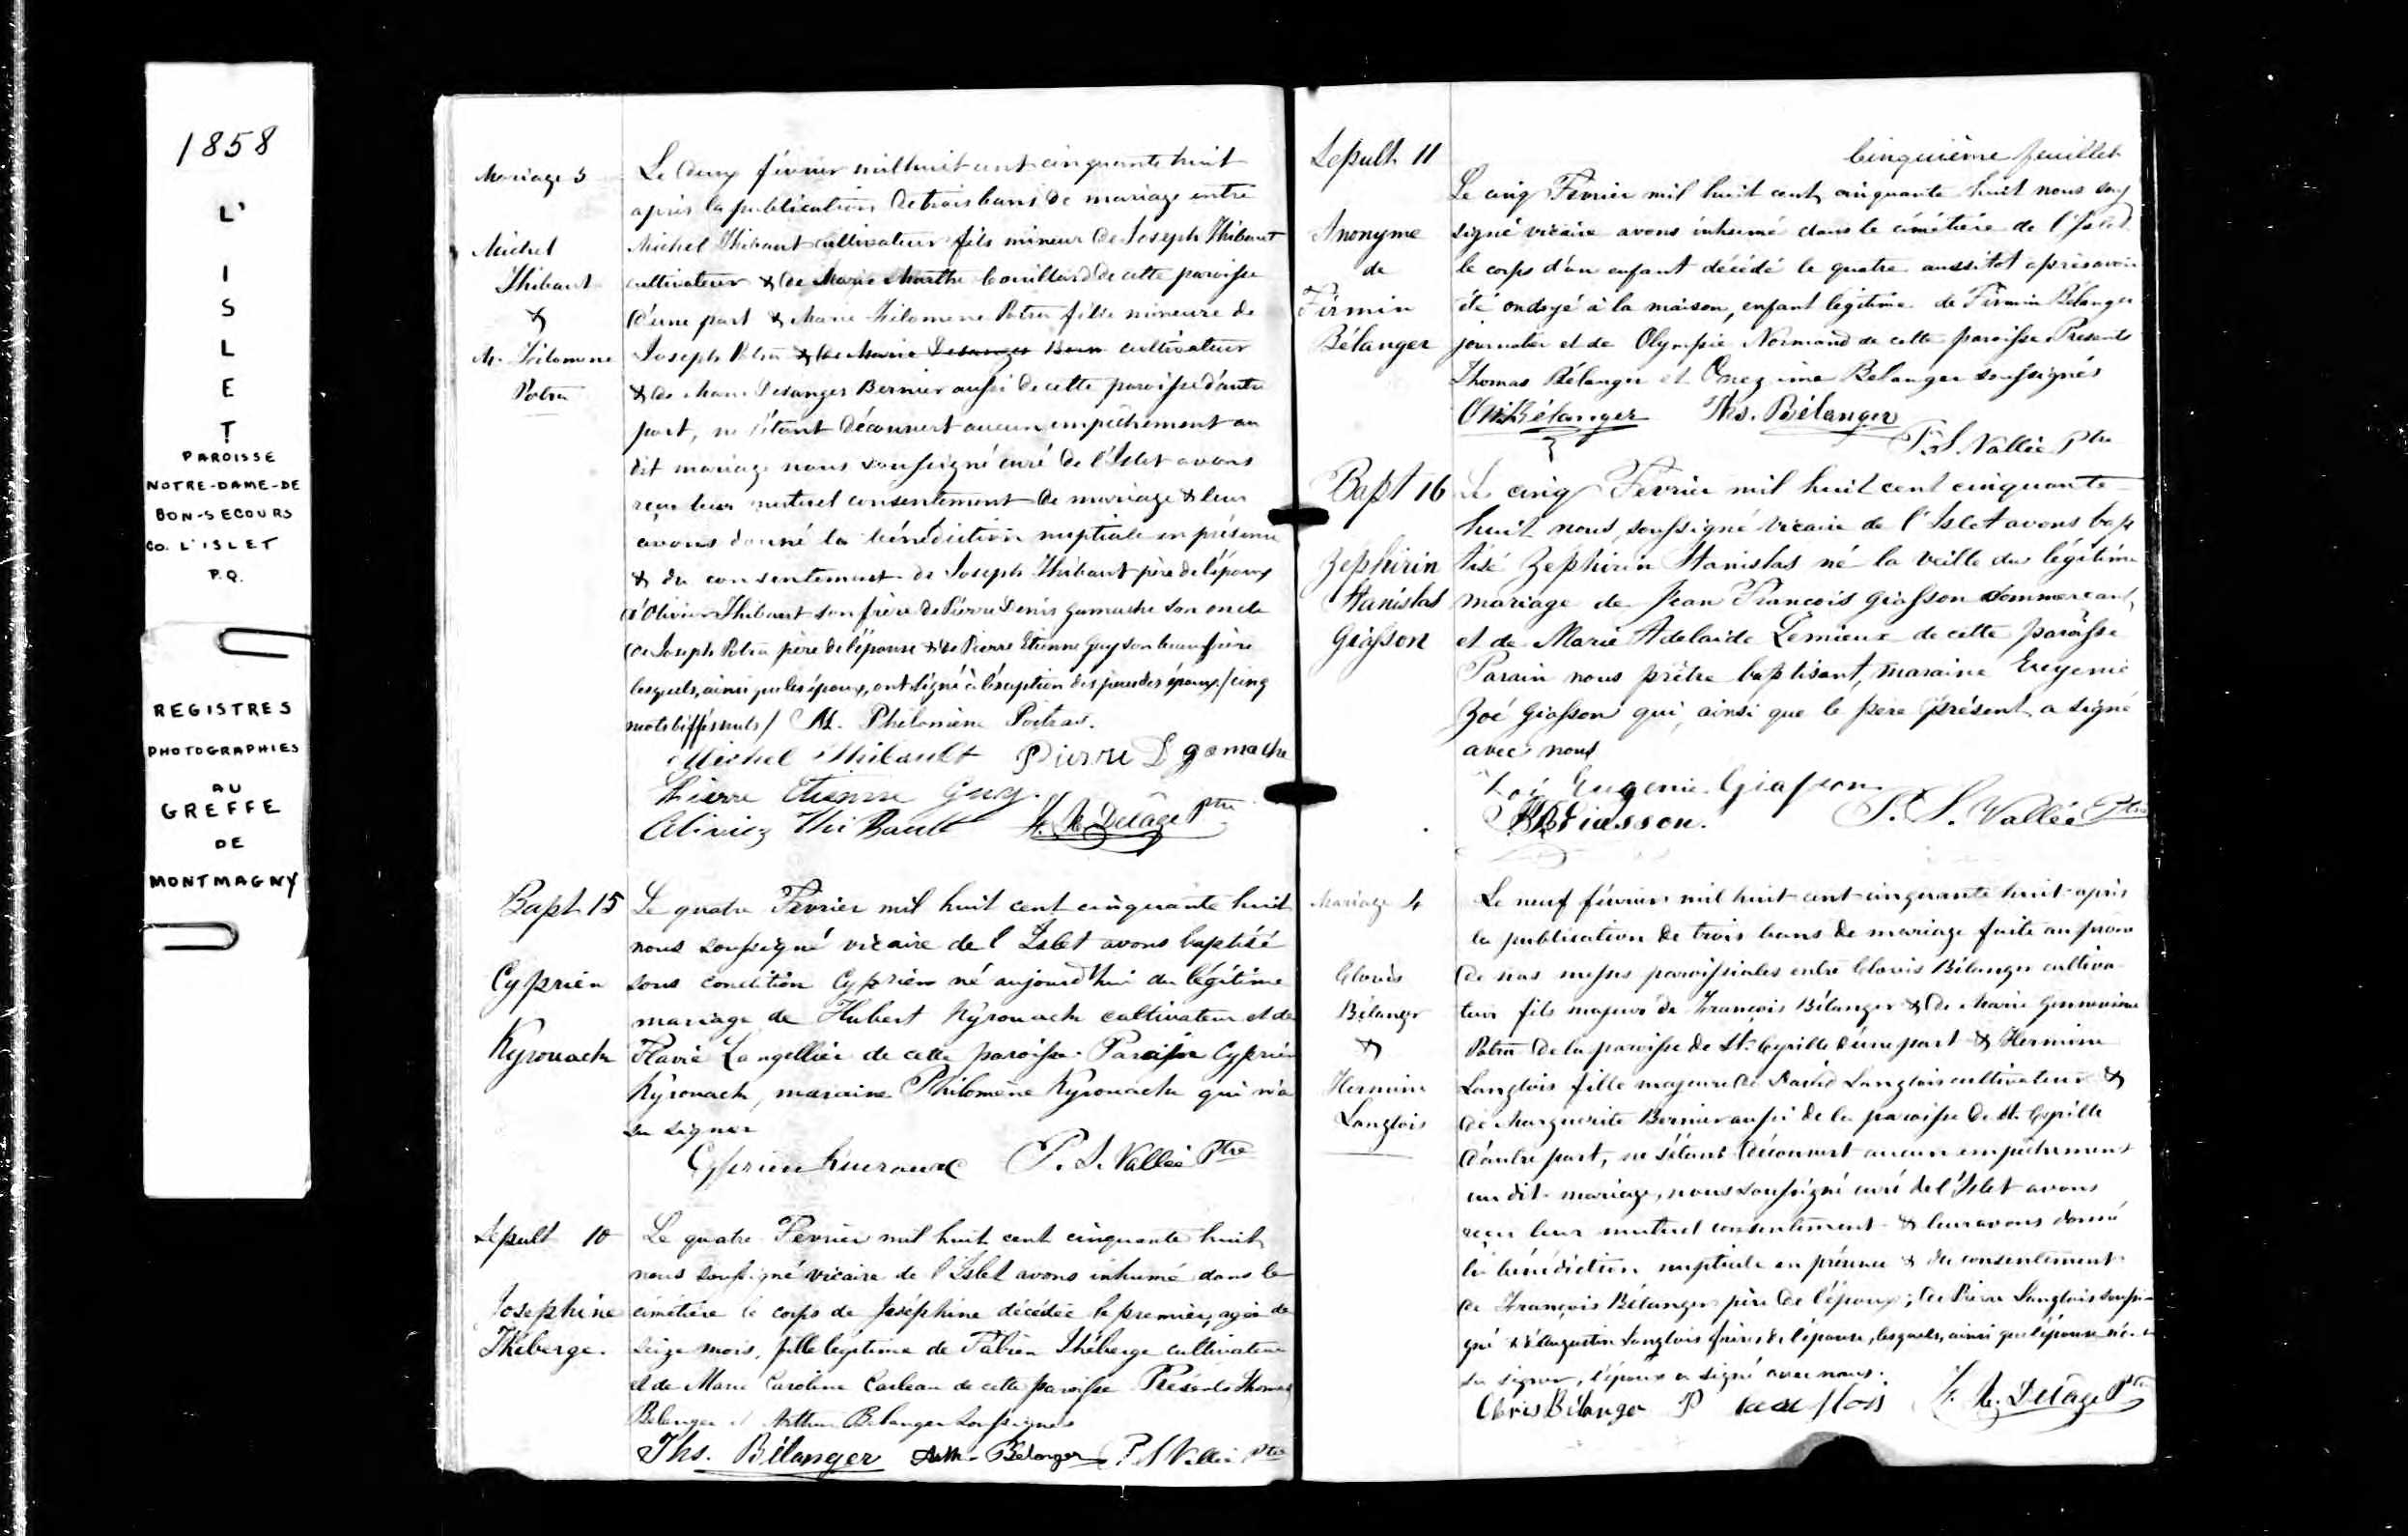 1858
L'
I
S
L
E
T
PAROISSE
NOTRE-DAME-DE
BON-SECOURS
CO. L'ISLET
P.Q.
REGISTRES
PHOTOGRAPHIES
AU
GREFFE
DE
MONTMAGNY
Mariage 3
Michel
Thibaut
&
M. Philomene
Potra
Le deux février mil huit cent cinquante huit
après la publication de trois bans de mariage entre
Michel Thibaut cultivateur fils mineur de Joseph Thibaut
cultivateur & de Marie Marthe Couillard de cette paroisse
d'une part & Marie Philomene Potra fille mineure de
Joseph Potra & de Marie Desanges Bern cultivateur
& de Marie Desanges Bernier aussi de cette paroisse d'autre
part, ne s'étant découvert aucun empêchement au
dit mariage nous soussigné curé de l'Islet avons
reçu leur mutuel consentement de mariage & leur
avons donné la bénédiction nuptiale en présence
& du consentement de Joseph Thibaut père de l'époux
d'Olivier Thibaut son frère de Pierre Denis Gamache son oncle
de Joseph Potra père de l'épouse & de Pierre Etienne Guy son beaufrère
lesquels, ainsi que les époux, ont signé à l'exception des pères des époux / cinq
mots biffés nuls / M. Philomène Poitras.
Michel Thibault Pierre D gamache
Pierre Etienne Guy.
Olivier Thibault Ptre
Bapt 15
Cyprien
Kyrouack
Le quatre Fevrier mil huit cent cinquante huit
nous soussigné vicaire de l'Islet avons baptisé
sous condition Cyprien né aujourd'hui du légitime
mariage de Hubert Kyrouack cultivateur et de
Flavie Langellier de cette paroisse. Parain Cyprien
Kyrouack, maraine Philomène Kyrouack qui n'a
su signer
Cyprien P. S. Vallée Ptre
Sepult 10
Josephine
Théberge.
Le quatre Fevrier mil huit cent cinquante huit
nous soussigné vicaire de l'Islet avons inhumé dans le
cimétière le corps de Joséphine décédée le premier, agée de
seize mois, fille légitime de Fabien Théberge cultivateur
et de Marie Caroline Carbeau de cette paroisse Présents Thomas
Belanger et Arthur Belanger soussignés
Ths. Bélanger Arth. Belanger P. S Vallée Ptre
Sepult 11
Anonyme
de
Firmin
Bélanger
Cinquième feuillet
Le cinq Fevrier mil huit cent cinquante huit nous sous
signé vicaire avons inhumé dans le cimétière de l'Islet
le corps d'un enfant décédé le quatre aussitot après avoir
été ondoyé à la maison, enfant légitime de Firmin Bélanger
journalier et de Olympie Normand de cette paroisse Présents
Thomas Bélanger et Onezime Belanger soussignés
On. Bélanger Ths. Bélanger
P. S. Vallée Ptre
Bapt 16
Zephirin
Stanislas
Giasson
Le cinq Fevrier mil huit cent cinquante
huit nous soussigné vicaire de l'Islet avons bap
tisé Zephirin Stanislas né la veille du légitime
mariage de Jean François Giasson commercant,
et de Marie Adelaide Lemieux de cette paroisse
Parain nous prêtre baptisant, maraine Eugenie
Zoé Giasson qui, ainsi que le père présent a signé
avec nous
Zoé Eugenie Giasson
Giasson. P. S. Vallée Ptre
Mariage 4
Clovis
Bélanger
&
Hermine
Langlois
Le neuf février mil huit cent cinquante huit après
la publication de trois bans de mariage faite au prône
de nos messes paroissiales entre Clovis Bélanger cultiva-
teur fils majeur de François Bélanger & de Marie Genevieve
Potra de la paroisse de St. Cyrille d'une part & Hermine
Langlois fille majeure de David Langlois cultivateur &
de Marguerite Bernier aussi de la paroisse de St. Cyrille
d'autre part, ne s'étant découvert aucun empêchement
au dit mariage, nous soussigné curé de l'Islet avons
reçu leur mutuel consentement & leur avons donné
la bénédiction nuptiale en présence & du consentement
de François Bélanger père de l'époux; de Pierre Langlois soussi-
gné & d'Augustin Langlois frères de l'épouse, lesquels, ainsi que l'épouse n'ont
su signer, l'époux a signé avec nous.
Clovis Bélanger P Ptre